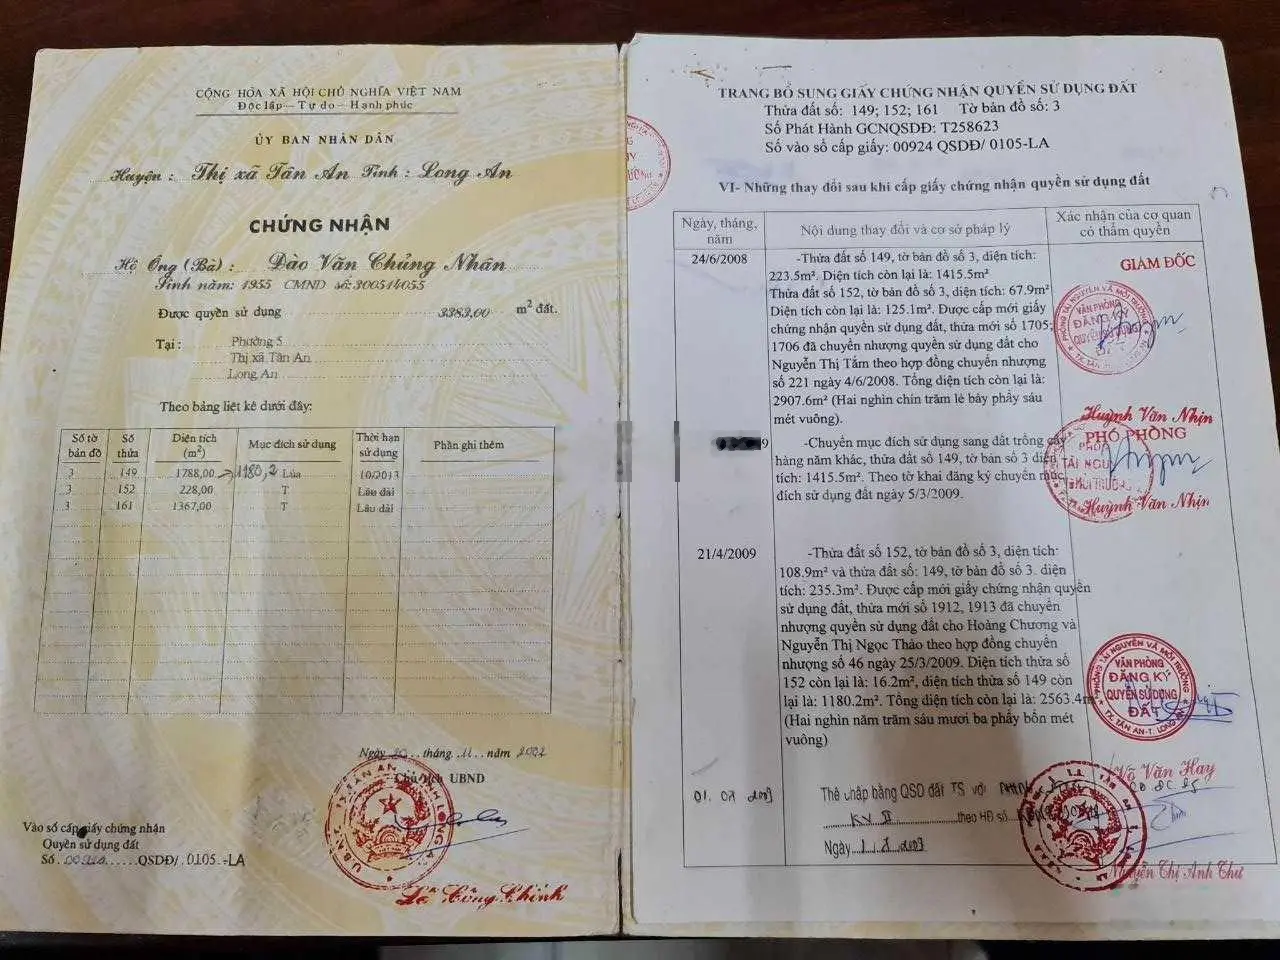 CỘNG HÒA XÃ HỘI CHỦ NGHĨA VIỆT NAM
Độc lập — Tự do — Hạnh phúc
ỦY BAN NHÂN DÂN
Huyện : Thị xã Tân An Tỉnh : Long An
CHỨNG NHẬN
Hộ Ông (Bà) : Đào Văn Chủng Nhân
Sinh năm: 1955 CMND số: 300514055
Được quyền sử dụng 3383,00 m² đất.
Tại : Phường 5
Thị xã Tân An
Long An
Theo bảng liệt kê dưới đây:
Số tờ bản đồ Số thửa Diện tích (m²) Mục đích sử dụng Thời hạn sử dụng Phần ghi thêm
3 149 1788,00 1180,2 Lúa 10/2013
3 152 228,00 T Lâu dài
3 161 1367,00 T Lâu dài
Ngày 20 tháng 11 năm
Chủ tịch UBND
Lê Công Chính
Vào sổ cấp giấy chứng nhận
Quyền sử dụng đất
Số QSDĐ/ 0105 -LA
TRANG BỔ SUNG GIẤY CHỨNG NHẬN QUYỀN SỬ DỤNG ĐẤT
Thửa đất số: 149; 152; 161 Tờ bản đồ số: 3
Số Phát Hành GCNQSDĐ: T258623
Số vào sổ cấp giấy: 00924 QSDĐ/ 0105-LA
VI- Những thay đổi sau khi cấp giấy chứng nhận quyền sử dụng đất
Ngày, tháng, năm Nội dung thay đổi và cơ sở pháp lý Xác nhận của cơ quan có thẩm quyền
24/6/2008
-Thửa đất số 149, tờ bản đồ số 3, diện tích:
223.5m². Diện tích còn lại là: 1415.5m²
Thửa đất số 152, tờ bản đồ số 3, diện tích: 67.9m²
Diện tích còn lại là: 125.1m². Được cấp mới giấy
chứng nhận quyền sử dụng đất, thửa mới số 1705;
1706 đã chuyển nhượng quyền sử dụng đất cho
Nguyễn Thị Tắm theo hợp đồng chuyển nhượng
số 221 ngày 4/6/2008. Tổng diện tích còn lại là:
2907.6m² (Hai nghìn chín trăm lẻ bảy phẩy sáu
mét vuông).
GIÁM ĐỐC
VĂN PHÒNG
ĐĂNG KÝ
QUYỀN SỬ DỤNG
ĐẤT
Huỳnh Văn Nhịn
9
-Chuyển mục đích sử dụng sang đất trồng cây
hàng năm khác, thửa đất số 149, tờ bản đồ số 3 diện
tích: 1415.5m². Theo tờ khai đăng ký chuyển mục
đích sử dụng đất ngày 5/3/2009.
PHÓ PHÒNG
Huỳnh Văn Nhịn
21/4/2009
-Thửa đất số 152, tờ bản đồ số 3, diện tích:
108.9m² và thửa đất số: 149, tờ bản đồ số 3. diện
tích: 235.3m². Được cấp mới giấy chứng nhận quyền
sử dụng đất, thửa mới số 1912, 1913 đã chuyển
nhượng quyền sử dụng đất cho Hoàng Chương và
Nguyễn Thị Ngọc Thảo theo hợp đồng chuyển
nhượng số 46 ngày 25/3/2009. Diện tích thửa số
152 còn lại là: 16.2m², diện tích thửa số 149 còn
lại là: 1180.2m². Tổng diện tích còn lại là: 2563.4m²
(Hai nghìn năm trăm sáu mươi ba phẩy bốn mét
vuông)
PHÒNG TÀI NGUYÊN VÀ MÔI TRƯỜNG
VĂN PHÒNG
ĐĂNG KÝ
QUYỀN SỬ DỤNG
ĐẤT
TX. TÂN AN-T. LONG AN
Võ Văn Hay
Thế chấp bằng QSD đất TS với
KV II theo HĐ số
Ngày
Nguyễn Thị Anh Thư